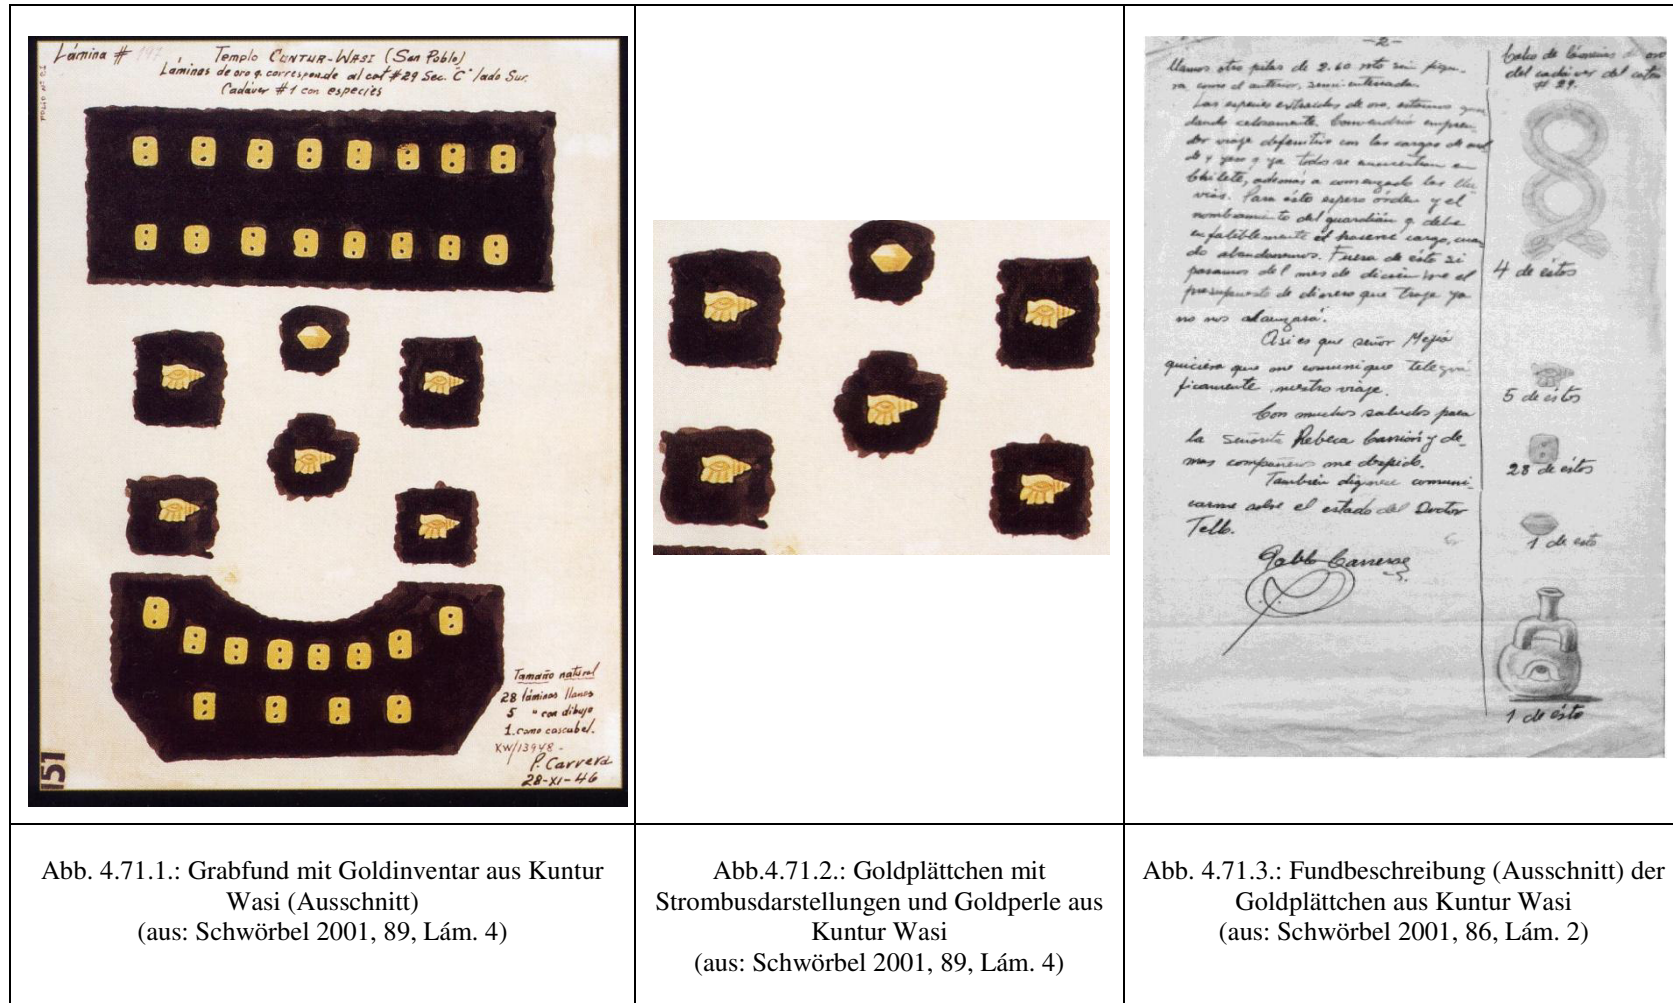 Lámina # 197
Templo CUNTUR-WASI (San Pablo)
Láminas de oro q. corresponde al cat #29 Sec. "C" lado Sur.
Cadáver #1 con especies
FOLIO Nº
Tamaño natural
28 láminas llanas
5 " con dibujo
1. como cascabel.
KW/13948 -
P. Carrera
28-XI-46
151
-2-
llamos otro pilas de 2.60 mts sin figu-
ra como el anterior, semi enterrada.
Las especies extraidas de oro, estamos guar
dando celosamente. Convendría empren-
der viaje definitivo con las cargas de
y yeso q ya todo se encuentran en
Chilete, además a comenzado las llu
vias. Para ésto espero órden y el
nombramiento del guardián q. debe
infaliblemente el hacerse cargo, cuan
do abandonemos. Fuera de esto si
pasamos del mes de diciembre el
presupuesto de dinero que traje ya
no nos alcanzará.
Así es que señor Mejía
quiciera que me comunique telegrá
ficamente nuestro viaje.
Con muchos saludos para
la Señorita Rebeca Carrión y de-
mas compañeros me despido.
También dígnese comuni-
carme sobre el estado del Doctor
Tello.
Pablo Carrera
Calco de láminas de oro
del cadáver del cateo
# 29.
4 de éstos
5 de éstos
28 de éstos
1 de esto
1 de ésto
Abb. 4.71.1.: Grabfund mit Goldinventar aus Kuntur
Wasi (Ausschnitt)
(aus: Schwörbel 2001, 89, Lám. 4)
Abb.4.71.2.: Goldplättchen mit
Strombusdarstellungen und Goldperle aus
Kuntur Wasi
(aus: Schwörbel 2001, 89, Lám. 4)
Abb. 4.71.3.: Fundbeschreibung (Ausschnitt) der
Goldplättchen aus Kuntur Wasi
(aus: Schwörbel 2001, 86, Lám. 2)